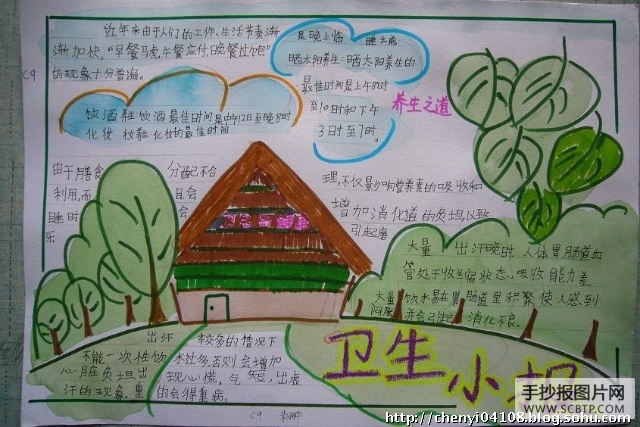 近年来由于人们的工作、生活节奏渐
渐加快,"早餐马虎,午餐应付,晚餐过饱"
的现象十分普遍。
C9
晒太阳养生:晒太阳养生的
最佳时间是上午8时
到10时和下午
3时至7时。
养生之道
饮酒养生 饮酒最佳时间是中午12日至晚8时
化妆 妆养 化妆的最佳时间
由于膳食
分配不合
理,不仅影响营养素的吸收和
利用,而
且会
增加消化道的负担以致
睡时
会
引起
大量出汗晚时,人体胃肠道血
管处于收缩状态,吸收能力差
大量饮水易在胃肠道里积聚,使人感到
消化不良。
出汗较多的情况下
不能一次性饮水过多,否则会增加
心脏负担出现心慌,气短,出虚
汗的现象,重的会得重病。
卫生小报
C9
手抄报图片网
WWW.SCBTP.COM
http://chenyi04108.blog.sohu.com